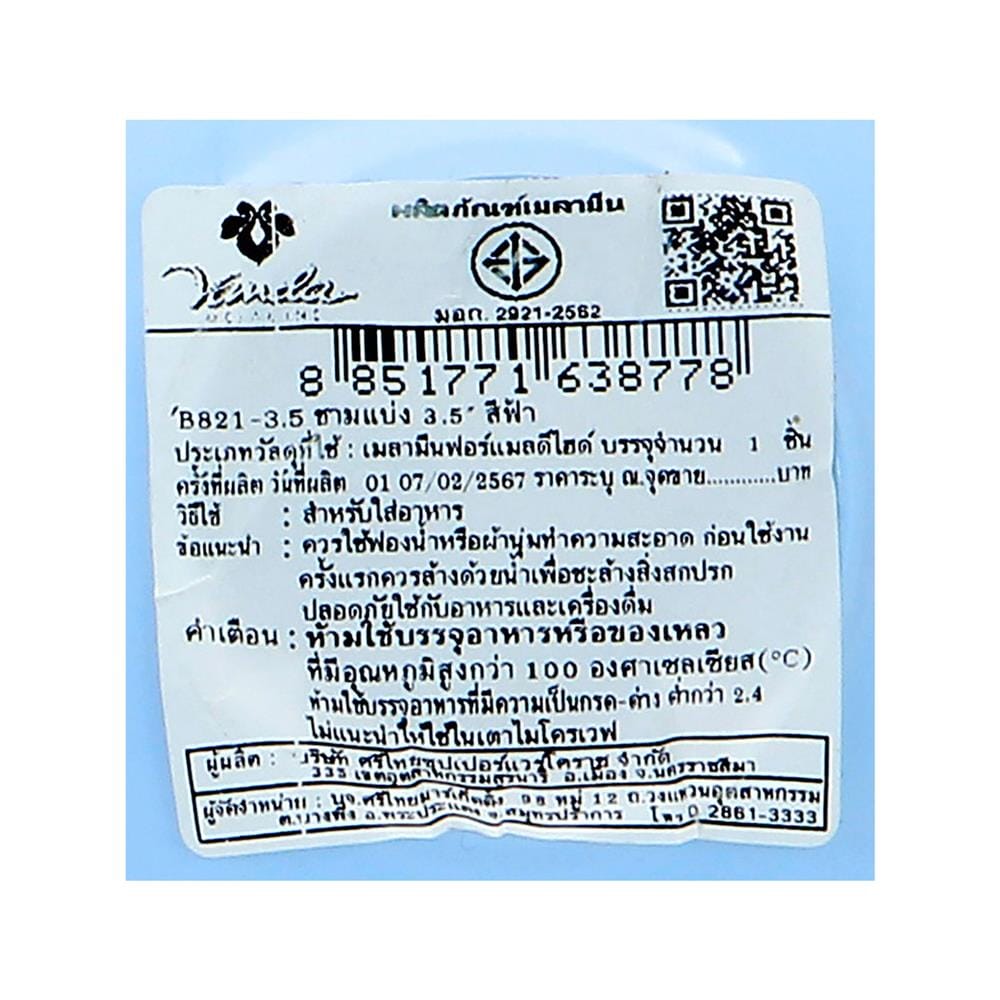 ผลิตภัณฑ์เมลามีน
Vanda
MELAMINE
มอก. 2921-2562
8 851771 638778
'B821-3.5 ชามแบ่ง 3.5" สีฟ้า
ประเภทวัสดุที่ใช้ : เมลามีนฟอร์แมลดีไฮด์ บรรจุจำนวน 1 ชิ้น
ครั้งที่ผลิต วันที่ผลิต 01 07/02/2567 ราคาระบุ ณ.จุดขาย............บาท
วิธีใช้ : สำหรับใส่อาหาร
ข้อแนะนำ : ควรใช้ฟองน้ำหรือผ้านุ่มทำความสะอาด ก่อนใช้งาน
ครั้งแรกควรล้างด้วยน้ำเพื่อชะล้างสิ่งสกปรก
ปลอดภัยใช้กับอาหารและเครื่องดื่ม
คำเตือน : ห้ามใช้บรรจุอาหารหรือของเหลว
ที่มีอุณหภูมิสูงกว่า 100 องศาเซลเซียส(°C)
ห้ามใช้บรรจุอาหารที่มีความเป็นกรด-ด่าง ต่ำกว่า 2.4
ไม่แนะนำให้ใช้ในเตาไมโครเวฟ
ผู้ผลิต : บริษัท ศรีไทยซุปเปอร์แวร์โคราช จำกัด
335 เขตอุตสาหกรรมสุรนารี อ.เมือง จ.นครราชสีมา
ผู้จัดจำหน่าย : บจ.ศรีไทยมาร์เก็ตติ้ง 98 หมู่ 12 ถ.วงแหวนอุตสาหกรรม
ต.บางพึ่ง อ.พระประแดง จ.สมุทรปราการ โทร 0 2861-3333